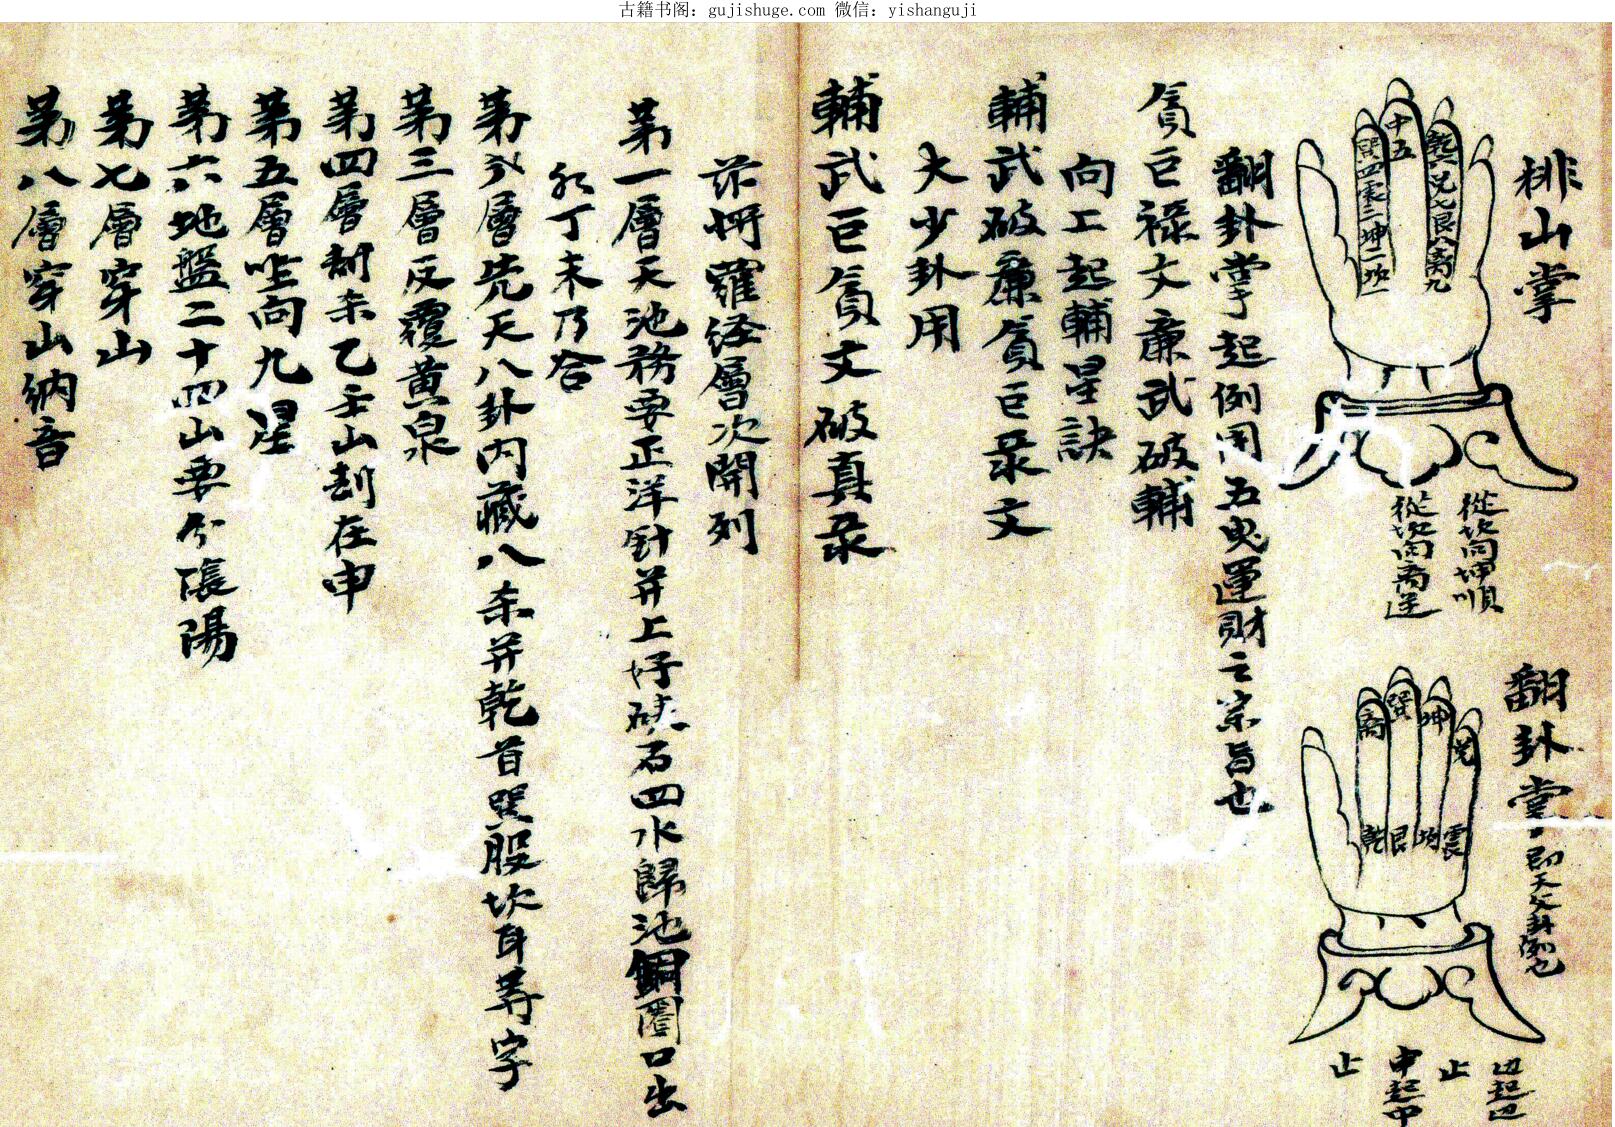 古籍书阁：gujishuge.com 微信：yishanguji
排山掌
中五
乾六兑七艮八離九
巽四震三坤二坎一
從坎向坤順
從坎向离逆
翻卦掌
即天父卦例也
离
巽
坤
兑
乾
艮
坎
震
边起边
止
中起中
止
翻卦掌起例用五鬼運財之宗旨也
貪巨祿文廉武破輔
向上起輔星訣
輔武破廉貪巨彔文
大少卦用
輔武巨貪文破真彔
茲將羅经層次開列
第一層天池務要正洋針并上好硤石四水歸池銅圈口出
丁未乃合
第弍層先天八卦内藏八杀并乾首巽股坎耳等字
第三層反覆黃泉
第四層刼杀乙壬山刼在申
第五層坐向九星
第六地盤二十四山要分陰陽
第七層穿山
第八層穿山納音